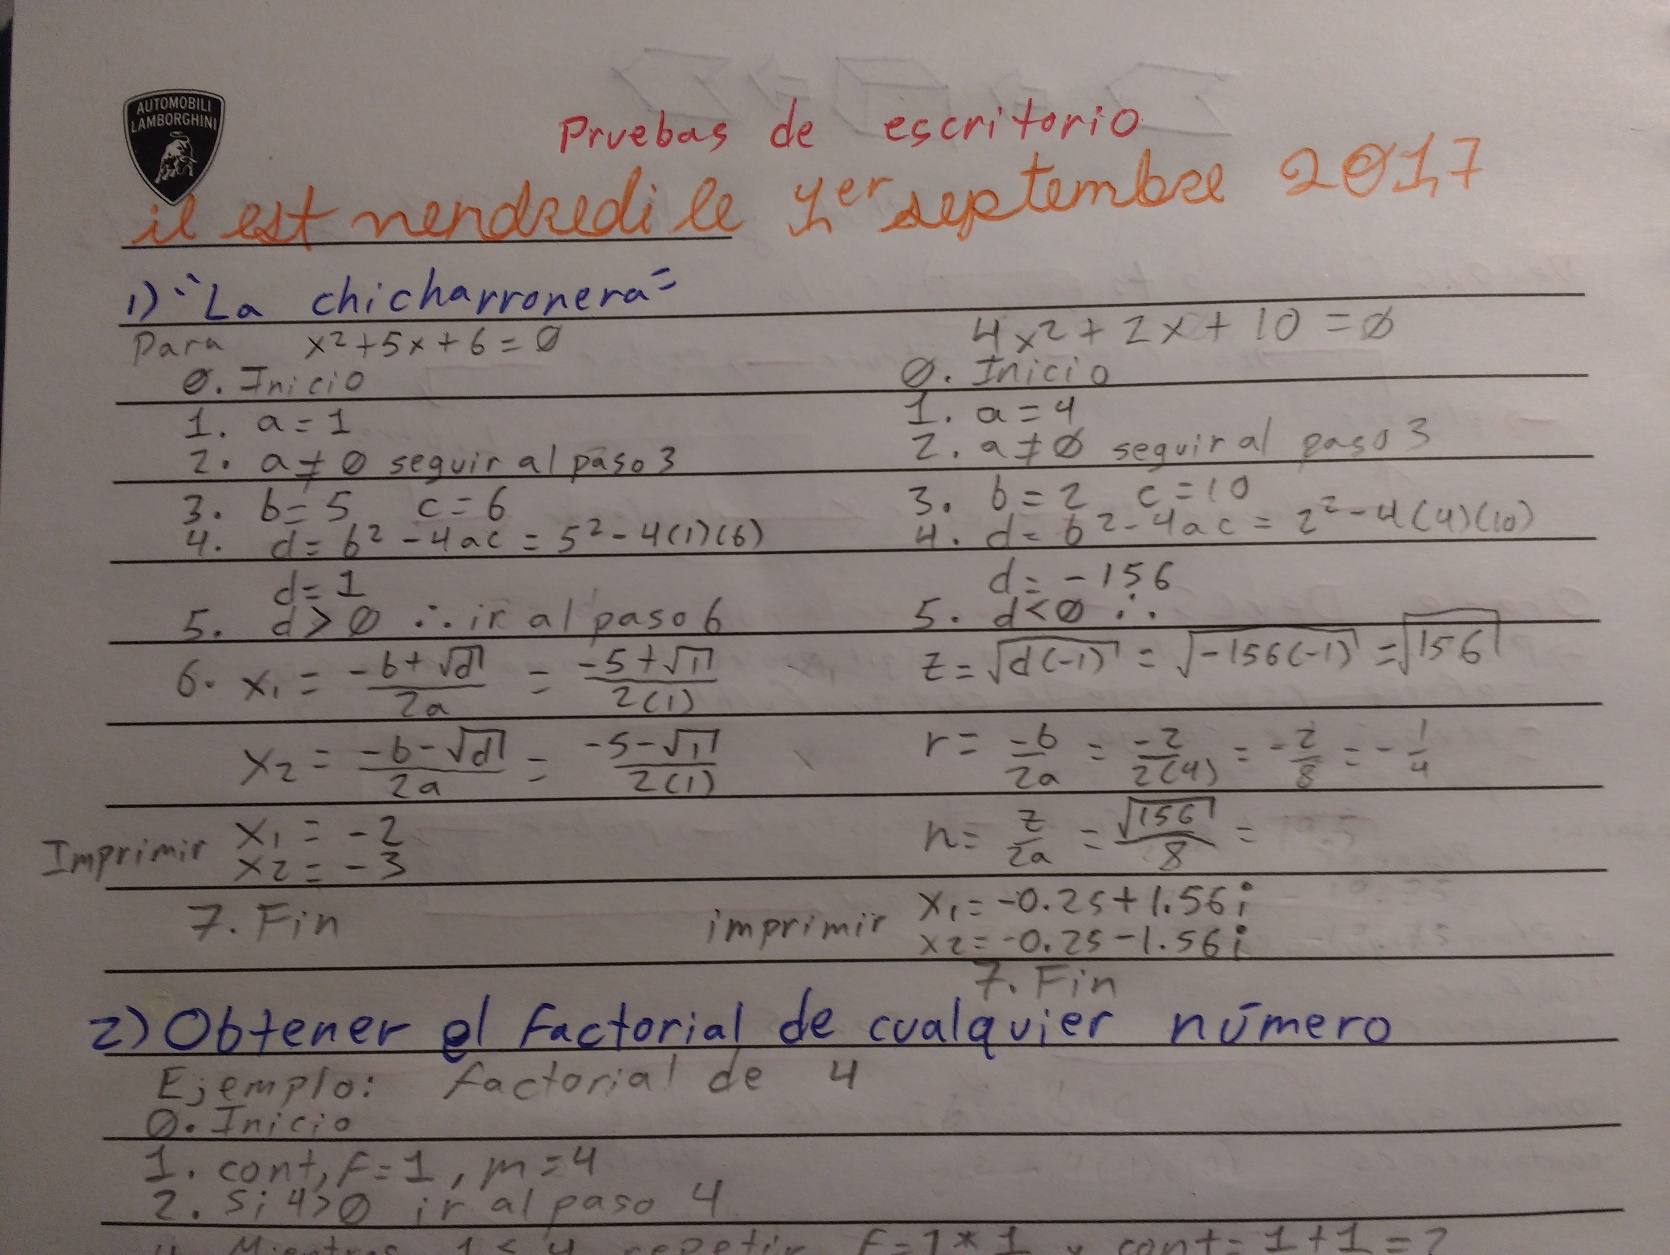 AUTOMOBILI
LAMBORGHINI
Pruebas de escritorio
il est vendredi le 1er septembre 2017
1) "La chicharronera"
Para x²+5x+6=0
0. Inicio
1. a=1
2. a≠0 seguir al paso 3
3. b=5 c=6
4. d=b²-4ac=5²-4(1)(6)
d=1
5. d>0 ∴ ir al paso 6
6. x₁ = (-b+√d)/2a = (-5+√1)/2(1)
x₂ = (-b-√d)/2a = (-5-√1)/2(1)
Imprimir x₁ = -2
x₂ = -3
7. Fin
4x²+2x+10=0
0. Inicio
1. a=4
2. a≠0 seguir al paso 3
3. b=2 c=10
4. d=b²-4ac=2²-4(4)(10)
d=-156
5. d<0 ∴
z=√d(-1) = √-156(-1) = √156
r= -b/2a = -2/2(4) = -2/8 = -1/4
n= z/2a = √156/8 =
imprimir x₁=-0.25+1.56i
x₂=-0.25-1.56i
7. Fin
2) Obtener el factorial de cualquier número
Ejemplo: factorial de 4
0. Inicio
1. cont, F=1, m=4
2. Si 4>0 ir al paso 4
4. Mientras 1≤4 repetir F=1*1 y cont=1+1=2